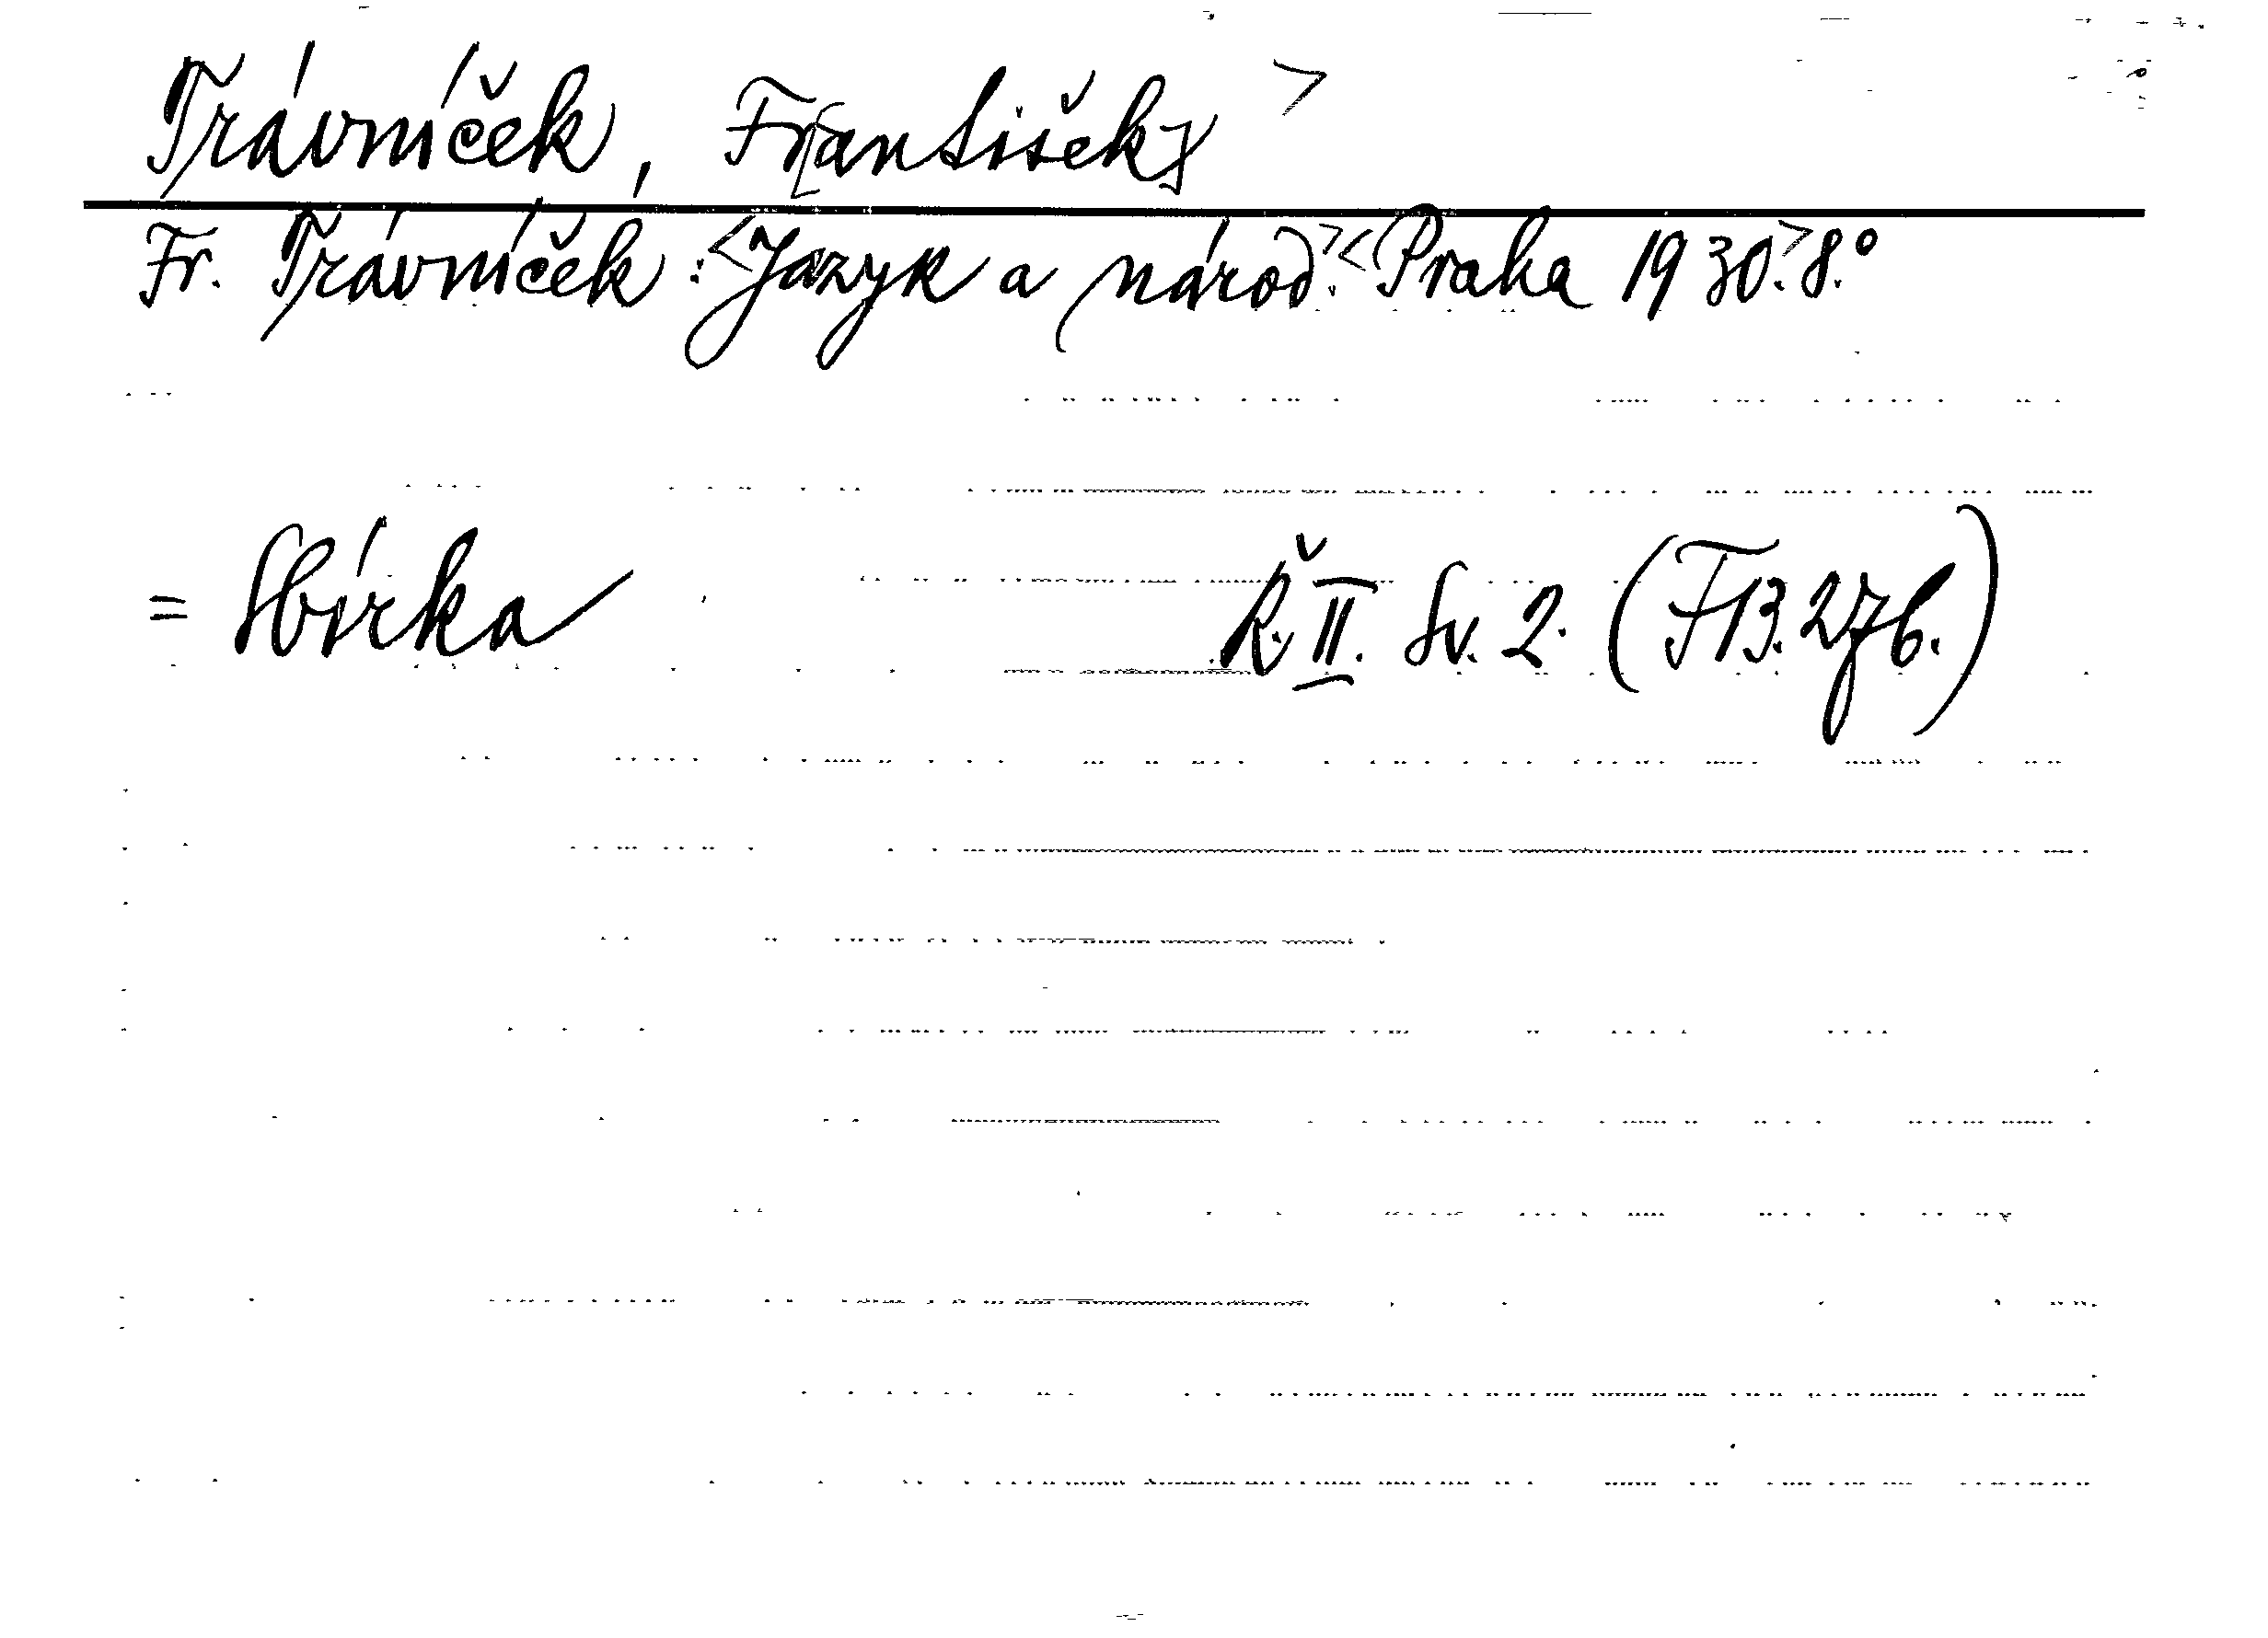 Trávníček, Fr[antišek] >
Fr. Trávníček: <Jazyk a národ.> <Praha 1930.> 8.°
= Sbírka Ř. II. Sv. 2. (F13.276.)